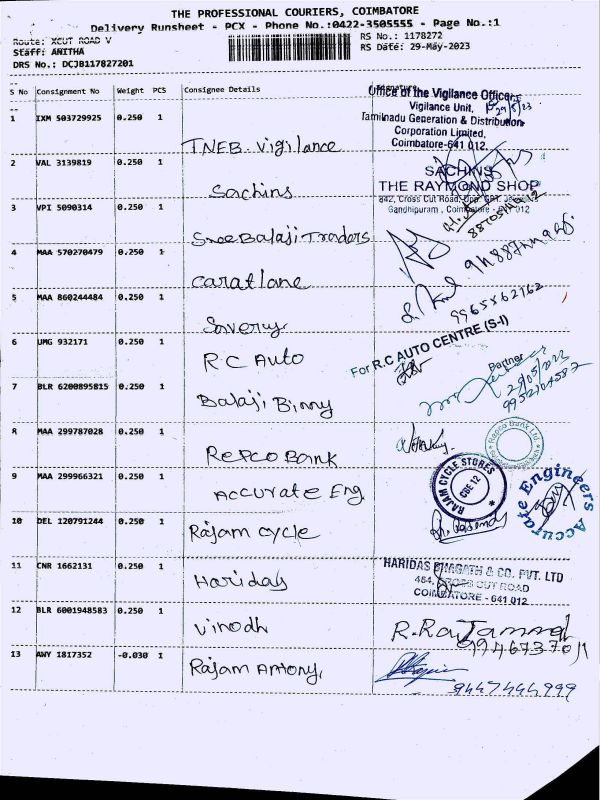 THE PROFESSIONAL COURIERS, COIMBATORE
Delivery Runsheet - PCX - Phone No.:0422-3505555 - Page No.:1
Route: XCUT ROAD V
Staff: ANITHA
DRS No.: DCJB117827201
RS No.: 1178272
RS Date: 29-May-2023
S No Consignment No Weight PCS Consignee Details Signature
1 IXM 503729925 0.250 1 TNEB vigilance
Office of the Vigilance Officer
Vigilance Unit,
Tamilnadu Generation & Distribution
Corporation Limited,
Coimbatore-641 012.
2 VAL 3139819 0.250 1 Sachins
SACHINS
THE RAYMOND SHOP
842, Cross Cut Road,
Gandhipuram, Coimbatore
3 VPI 5090314 0.250 1 Sree Balaji Traders
4 MAA 570270479 0.250 1 caratlane
5 MAA 860244484 0.250 1
9965862162
6 UMG 932171 0.250 1 R C Auto
For R.C AUTO CENTRE (S-I)
Partner
7 BLR 6200895815 0.250 1 Balaji Binny
29/05/2023
8 MAA 299787028 0.250 1 REPCO BANK
Repco Bank Ltd
9 MAA 299966321 0.250 1 Accurate Eng
Accurate Engineers
10 DEL 120791244 0.250 1 Rajam cycle
RAJAM CYCLE STORES
CBE 12
11 CNR 1662131 0.250 1 Haridas
HARIDAS BHAGATH & CO. PVT. LTD
464, CROSS CUT ROAD
COIMBATORE - 641 012
12 BLR 6001948583 0.250 1 vinodh
13 AWY 1817352 -0.030 1 Rajam Antony
9447444999